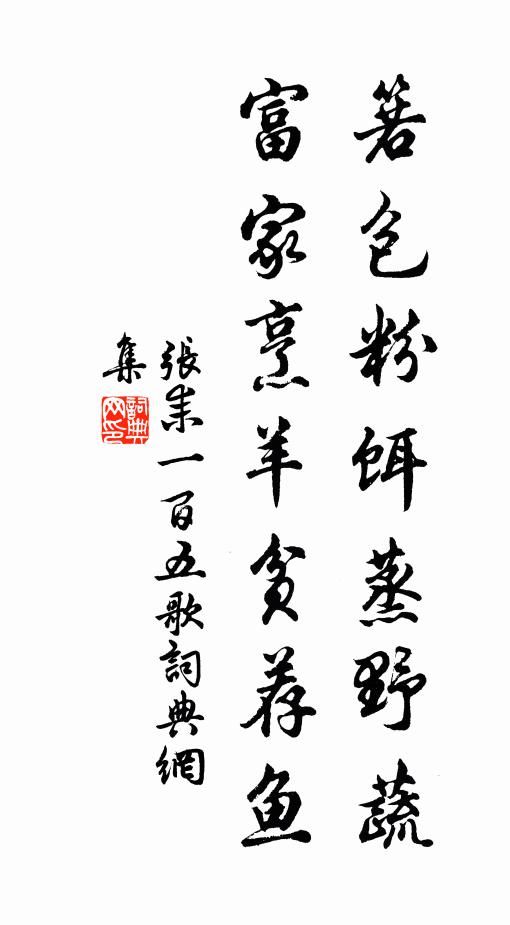 箬包粉餌蒸野蔬
富家烹羊貧荐鱼
張耒一百五歌詞典網
集
詞典
网印